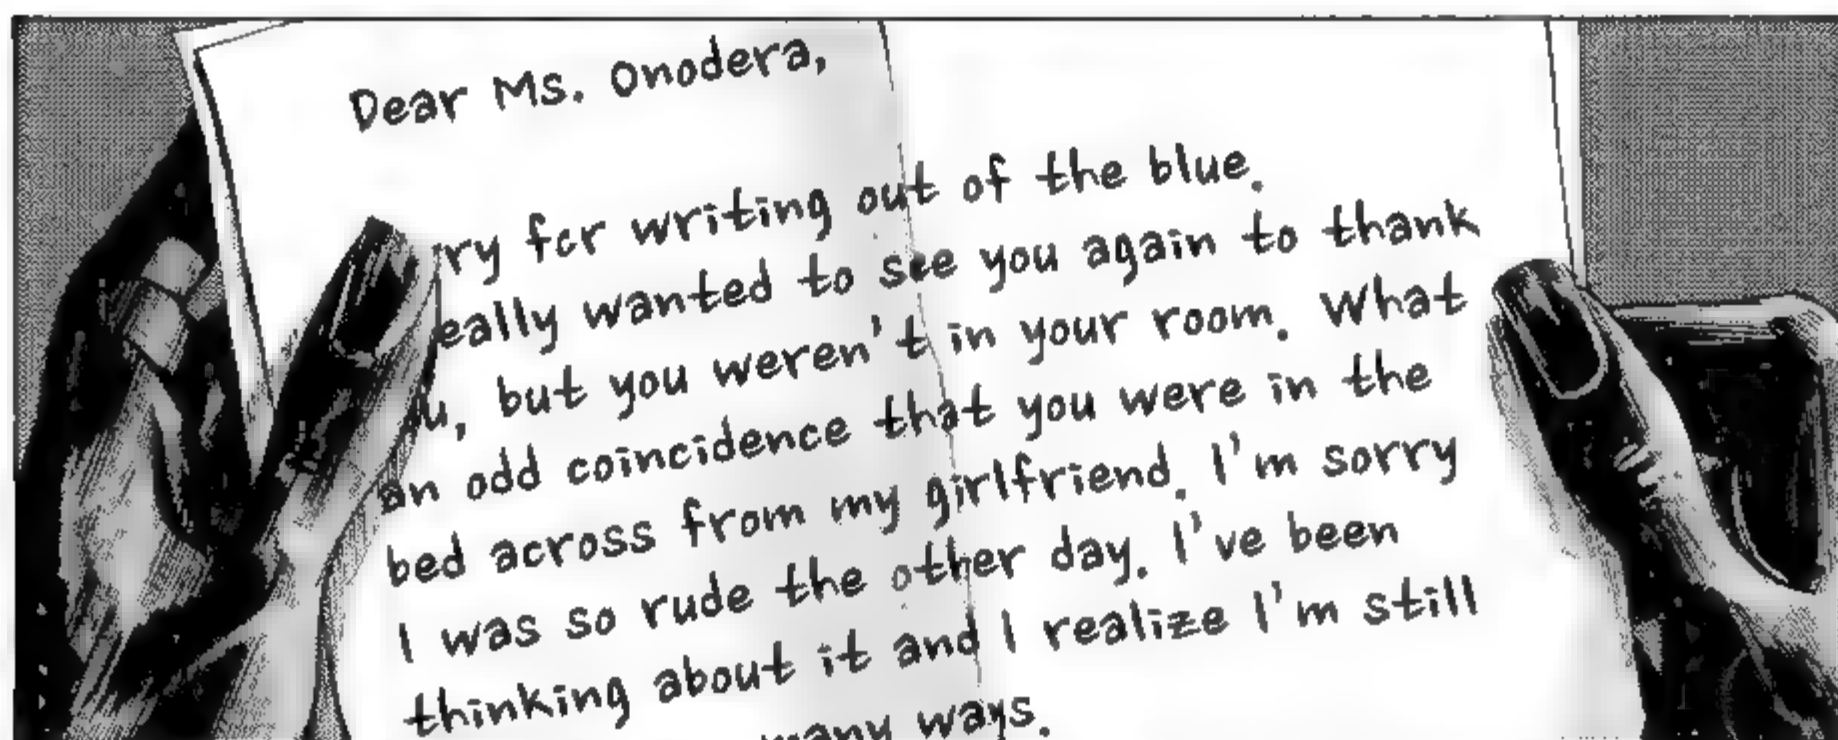 Dear Ms. Onodera,
ry for writing out of the blue.
eally wanted to see you again to thank
u, but you weren't in your room. What
an odd coincidence that you were in the
bed across from my girlfriend. I'm sorry
I was so rude the other day. I've been
thinking about it and I realize I'm still
many ways.